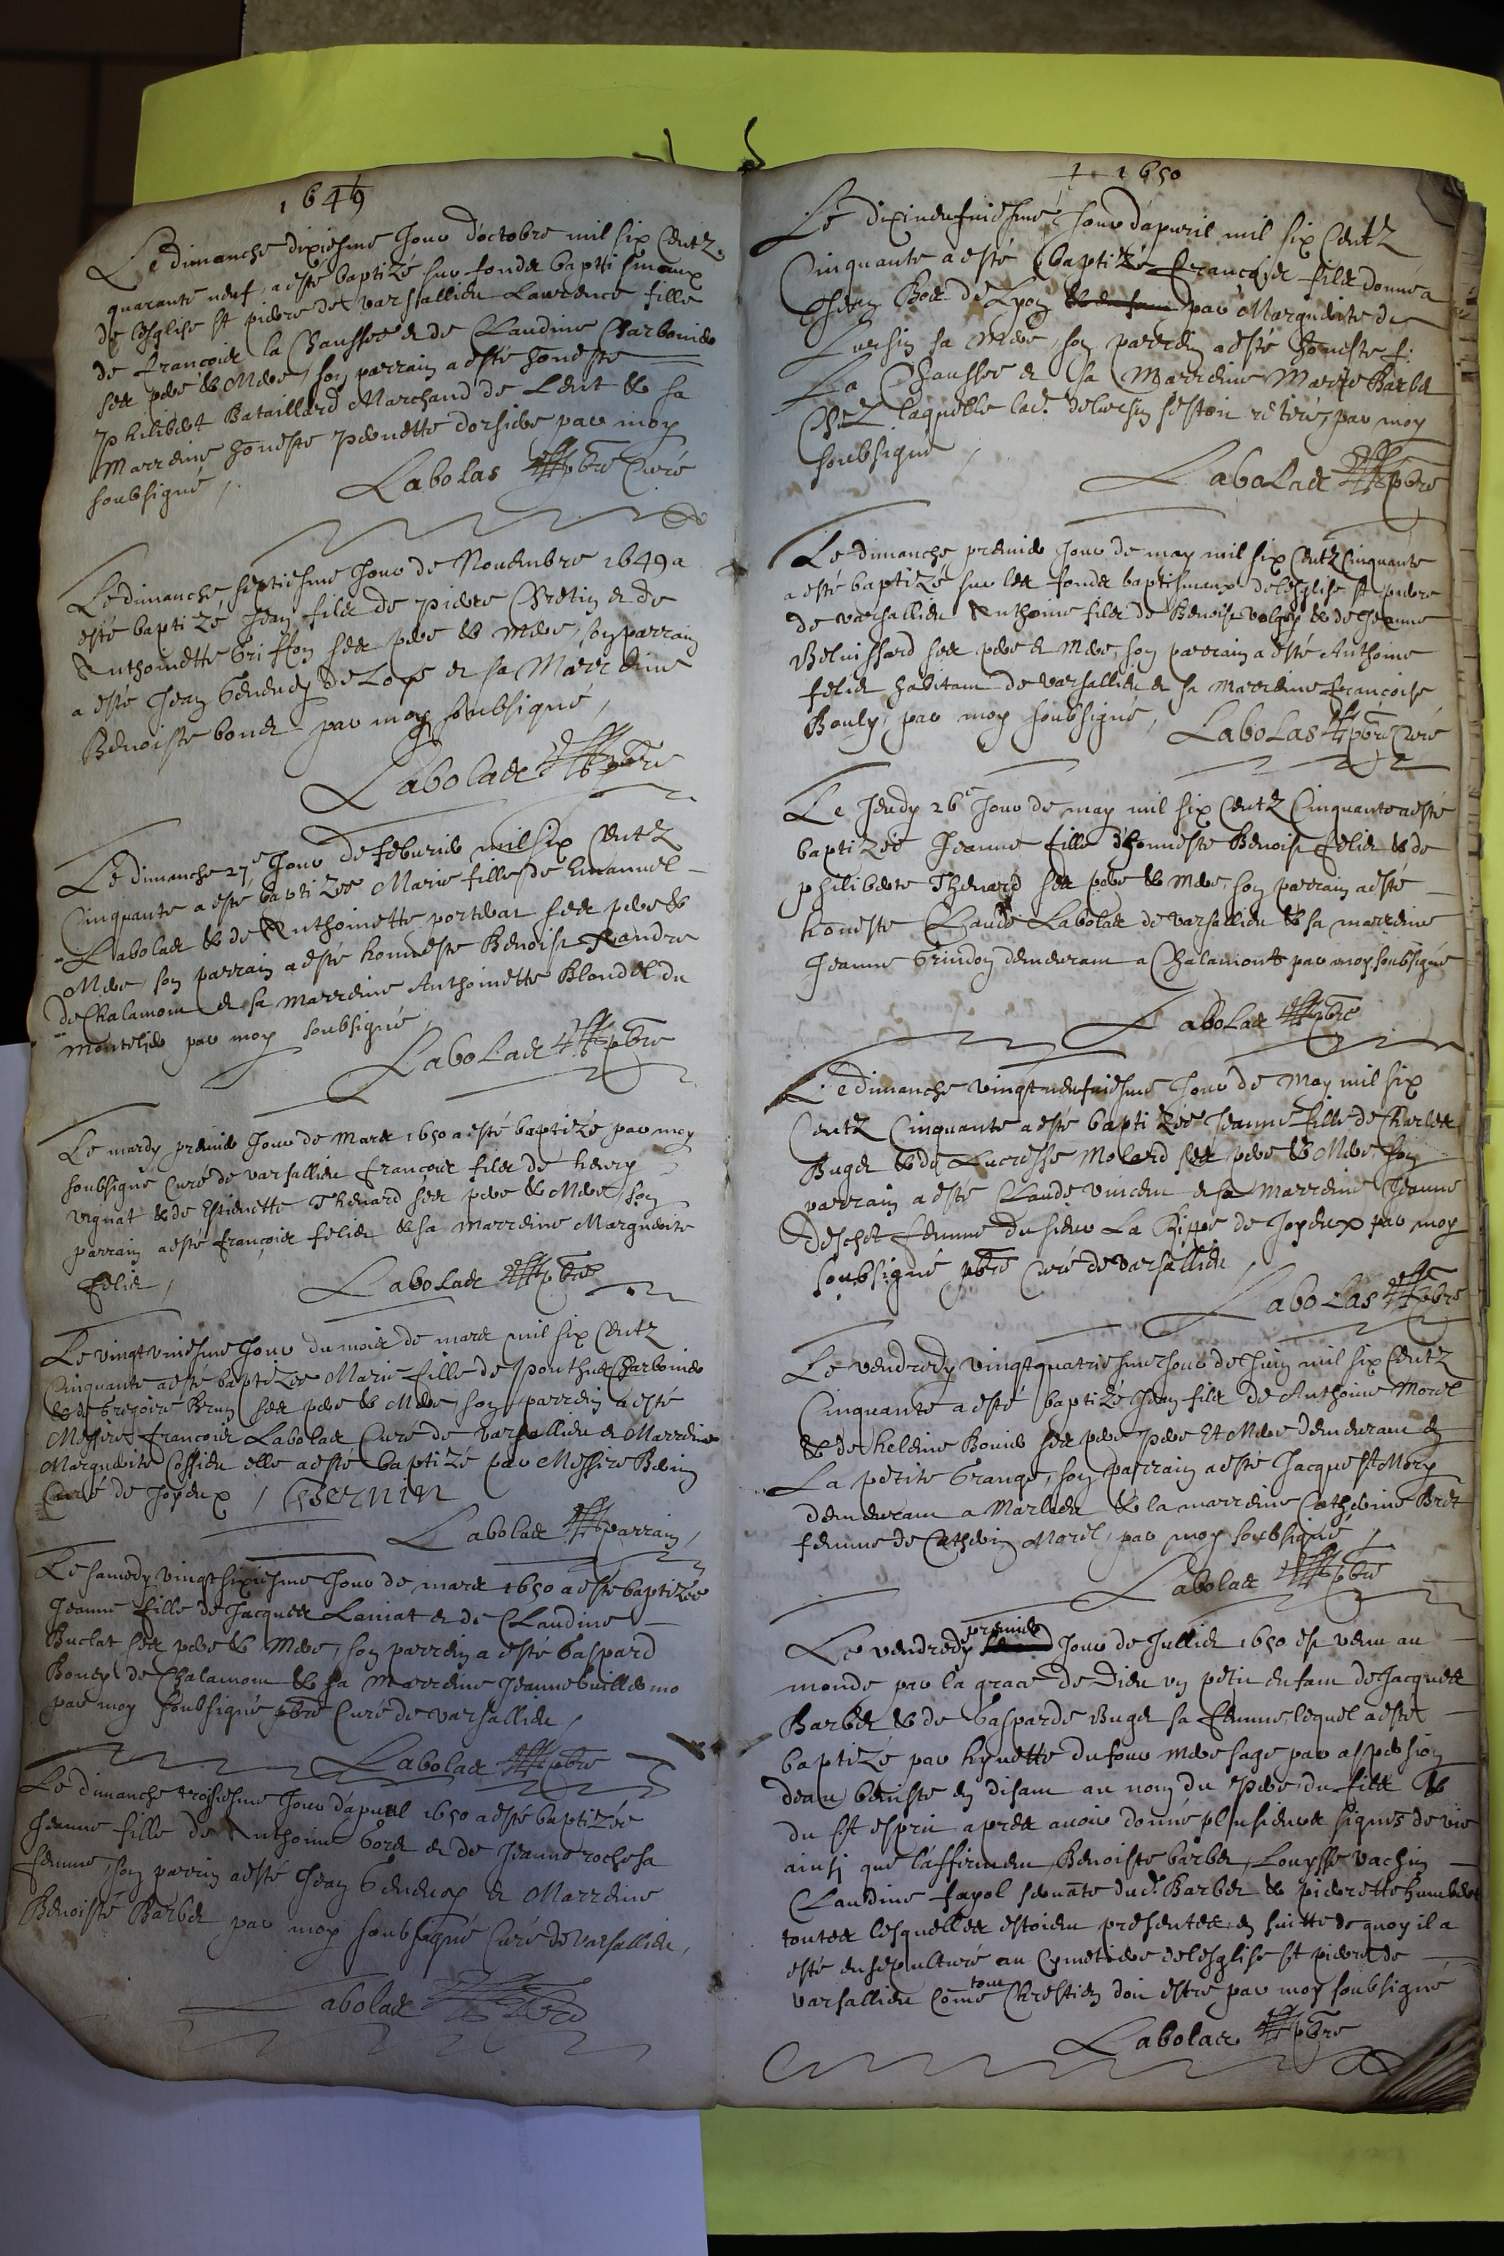 1649
Le dimanche dixiesme Jour doctobre mil six Centz
quarante neuf, a esté baptizé sur fondz baptismaux
de lesglise st pierre de Varsallieu Lawrence fille
de francois la Chaussee et de Claudine Charbonier
ses pere & Mere, son parrain a esté honeste
philibert Bataillard Marchand de Lent & sa
Marreine honeste pernette dorsiere par moy
soubsigné,
Labolas pbre Curé
Le dimanche septiesme Jour de Novembre 1649 a
esté baptizé Jean filz de pierre Chretin et de
Anthoinette Griffon ses pere & mere, son parrain
a esté Jean Genevey de Loye et sa Marreine
Benoiste bond par moy soubsigné,
Labolas pbre
Le dimanche 27e Jour de febvrier mil six Centz
Cinquante a esté baptizee Marie fille de Emanuel
Labolas & de Anthoinette portevat ses pere &
Mere, son parrain a esté honneste Benoist
de Chalamont et sa Marreine Anthoinette Blondel du
par moy soubsigné,
Labolas pbre
Le mardy premier Jour de Mars 1650 a esté baptizé par moy
soubsigné Curé de varsallieu francois filz de henry
vignat & de Estienette Thenard ses pere & Mere, son
parrain a esté francois felix & sa marreine Marguerite
felix,
Labolas pbre
Le vingtviesme Jour du mois de mars mil six Centz
Cinquante a esté baptizee Marie fille de Ponthus Charbonier
& de Gregoire Brun ses pere & Mere, son parrein a esté
Messire francois Labolas Curé de varsallieu et Marreine
Marguerite Coffieu elle a esté baptizé par Messire Benin
Curé de Joyeux,
Labolas parrain,
Le samedy vingtsixiesme Jour de mars 1650 a esté baptizée
Jeanne fille de Jacques Laniat et de Claudine
Buclat ses pere & Mere, son parrein a esté Gaspard
Boney de Chalamont & sa Marreine Jeanne Guillermo
par moy soubsigné pbre Curé de varsallieu,
Labolas pbre
Le dimanche troisiesme Jour dapvril 1650 a esté baptizée
Jeanne fille de Anthoine Gore et de Jeanne roche sa
femme, son parrin a esté Jean Genevey et Marreine
Benoiste Barbet par moy soubsigné Curé de varsallieu,
Labolas
1650
Le dixineufviesme Jour dapvril mil six Centz
Cinquante a esté baptizé francois filz donné a
Jean Boet de Lyon par Marguerite de
Luersin sa mere, son parrein a esté honeste f.
La Chaussee et sa Marreine Marie Barbet
Chez laquelle lad. deluersin sestoit retiré, par moy
soubsigné,
Labolas pbre
Le dimanche premier Jour de may mil six Centz Cinquante
a esté baptizé sur les fondz baptismaux de lesglise st pierre
de varsallieu Anthoine filz de Benoist & de Jeanne
Beluissard ses pere et Mere, son parrain a esté Anthoine
felix habitant de varsallieu et sa Marreine francoise
Bouly, par moy soubsigné,
Labolas pbre Curé
Le Jeudy 26e Jour de may mil six Centz Cinquante a esté
baptizée Jeanne fille dhonneste Benoist felix & de
philiberte Thenard ses pere & Mere, son parrain a esté
honeste Claude Labolas de varsallieu & sa marreine
Jeanne Grindon demeurant a Chalamont par moy soubsigné
Labolas pbre
Le dimanche vingtneufviesme Jour de May mil six
Centz Cinquante a esté baptizée Jeanne fille de Charles
Buget & de Lucresse Molard ses pere & Mere, son
parrain a esté Claude vincent et sa Marreine Jeanne
Deschet femme du sieur La Rippe de Joyeux par moy
soubsigné pbre Curé de varsallieu,
Labolas pbre
Le vendredy vingtquatriesme Jour de Juin mil six Centz
Cinquante a esté baptizé Jean filz de Anthoine Morel
& de heleine Bonier ses pere pere Et Mere demeurant en
La petite Grange, son parrain a esté Jacque st Mory
demeurant a Marlieu & la marreine Catherine Bret
femme de Catherin Morel, par moy soubsigné,
Labolas pbre
Le vendredy premier Jour de Jullet 1650 est venu au
monde par la grace de Dieu un petit enfant de Jacques
Barbet & de Gasparde Buget sa femme, lequel a esté
baptizé par hynette dufour mere sage par aspersion
deau beniste en disant au nom du pere du filz &
du st esprit apres avoir donné plusieurs signes de vie
ainsi que laffirment Benoiste barbet, Louysse vachin
Claudine fayol servante dud. Barbet & pierrette humbert
toutes lesquelles estoient presentes, en suitte de quoy il a
esté ensepulturé au Cymetiere de lesglise st pierre de
varsallieu Come tout Chrestien doit estre par moy soubsigné
Labolas pbre